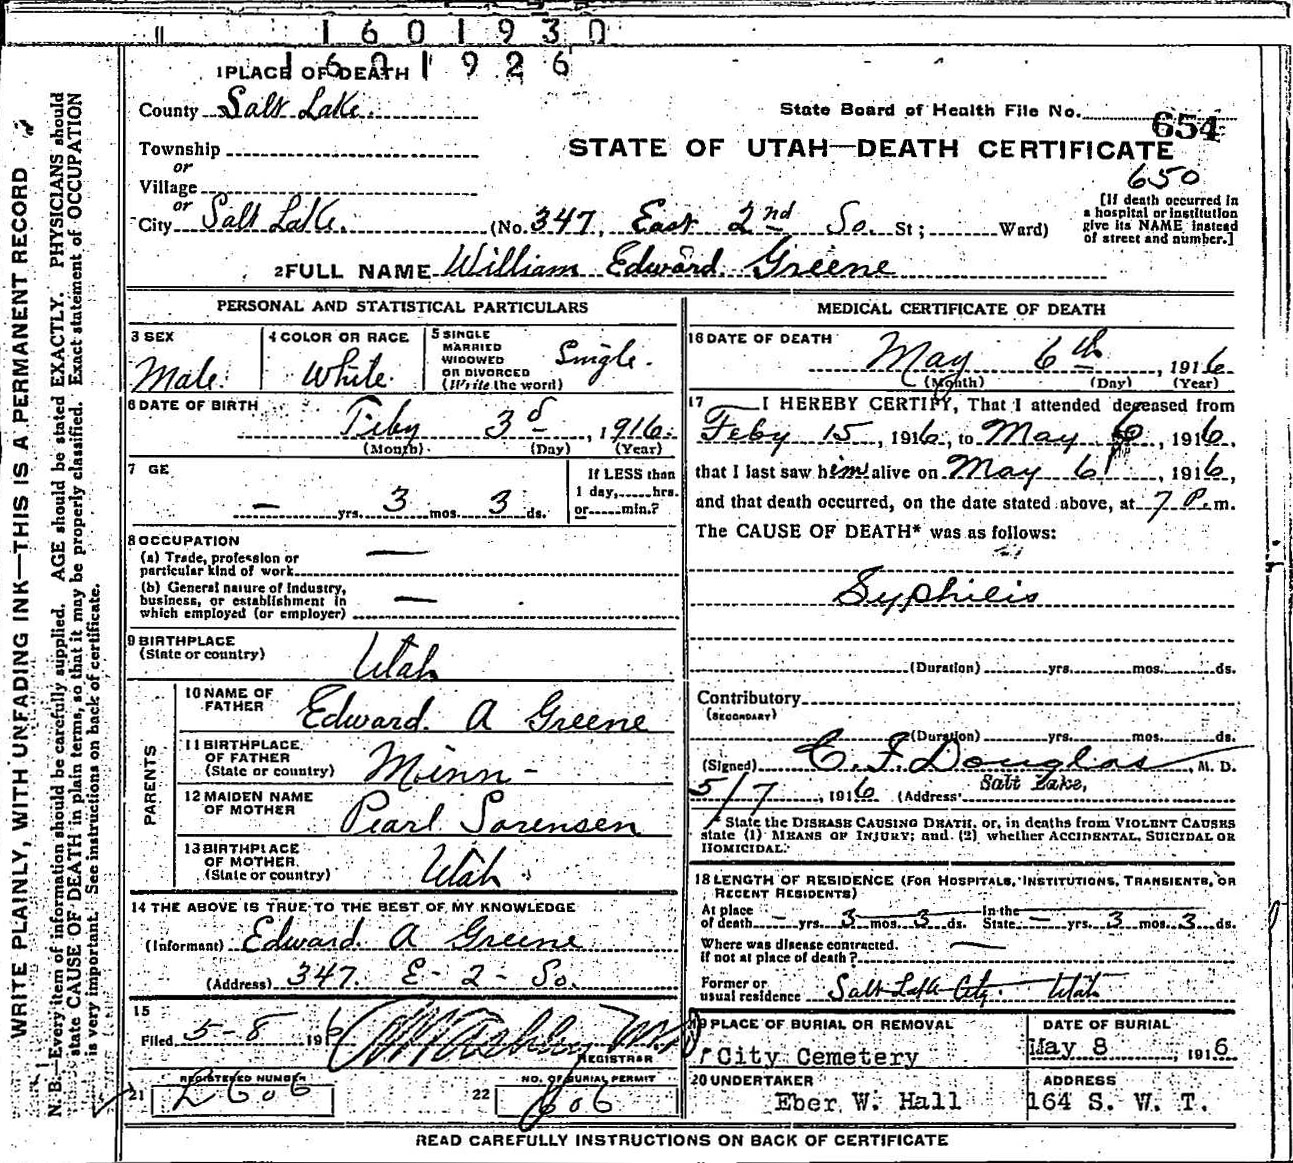 1601930
1601926
1 PLACE OF DEATH
County Salt Lake.
State Board of Health File No. 654
Township
or
STATE OF UTAH—DEATH CERTIFICATE
650
Village
or
City Salt Lake. (No. 347, East 2nd So. St; Ward)
[If death occurred in
a hospital or institution
give its NAME instead
of street and number.]
2 FULL NAME William Edward Greene
PERSONAL AND STATISTICAL PARTICULARS
3 SEX
Male.
4 COLOR OR RACE
White.
5 SINGLE
MARRIED
WIDOWED
OR DIVORCED
(Write the word)
Single.
6 DATE OF BIRTH
Feby 3d, 1916.
(Month) (Day) (Year)
7 GE
— yrs. 3 mos. 3 ds.
If LESS than
1 day, hrs.
or min.?
8 OCCUPATION
(a) Trade, profession or
particular kind of work —
(b) General nature of Industry,
business, or establishment in
which employed (or employer) —
9 BIRTHPLACE
(State or country) Utah
PARENTS
10 NAME OF
FATHER Edward. A Greene
11 BIRTHPLACE
OF FATHER
(State or country) Minn-
12 MAIDEN NAME
OF MOTHER Pearl Sorensen
13 BIRTHPLACE
OF MOTHER.
(State or country) Utah.
14 THE ABOVE IS TRUE TO THE BEST OF MY KNOWLEDGE
(Informant) Edward. A Greene
(Address) 347. E- 2- So.
15
Filed 5-8 1916
REGISTRAR
21 REGISTERED NUMBER
22 NO. OF BURIAL PERMIT
606
MEDICAL CERTIFICATE OF DEATH
16 DATE OF DEATH
May 6th, 1916
(Month) (Day) (Year)
17 I HEREBY CERTIFY, That I attended deceased from
Feby 15, 1916, to May 6, 1916,
that I last saw him alive on May 6, 1916,
and that death occurred, on the date stated above, at 7 P. m.
The CAUSE OF DEATH* was as follows:
Syphilis
(Duration) yrs. mos. ds.
Contributory
(SECONDARY)
(Duration) yrs. mos. ds.
(Signed) C. F. Douglas, M. D.
5/7, 1916 (Address) Salt Lake,
* State the DISEASE CAUSING DEATH, or, in deaths from VIOLENT CAUSES
state (1) MEANS OF INJURY; and (2) whether ACCIDENTAL, SUICIDAL OR
HOMICIDAL.
18 LENGTH OF RESIDENCE (FOR HOSPITALS, INSTITUTIONS, TRANSIENTS, OR
RECENT RESIDENTS)
At place
of death — yrs. 3 mos. 3 ds. In the
State — yrs. 3 mos. 3 ds.
Where was disease contracted.
if not at place of death? —
Former or
usual residence Salt Lake City. Utah
19 PLACE OF BURIAL OR REMOVAL
City Cemetery
DATE OF BURIAL
May 8, 1916
20 UNDERTAKER
Eber W. Hall
ADDRESS
164 S. W. T.
READ CAREFULLY INSTRUCTIONS ON BACK OF CERTIFICATE
WRITE PLAINLY, WITH UNFADING INK—THIS IS A PERMANENT RECORD
N. B.—Every item of information should be carefully supplied. AGE should be stated EXACTLY. PHYSICIANS should
state CAUSE OF DEATH in plain terms, so that it may be properly classified. Exact statement of OCCUPATION
is very important. See instructions on back of certificate.